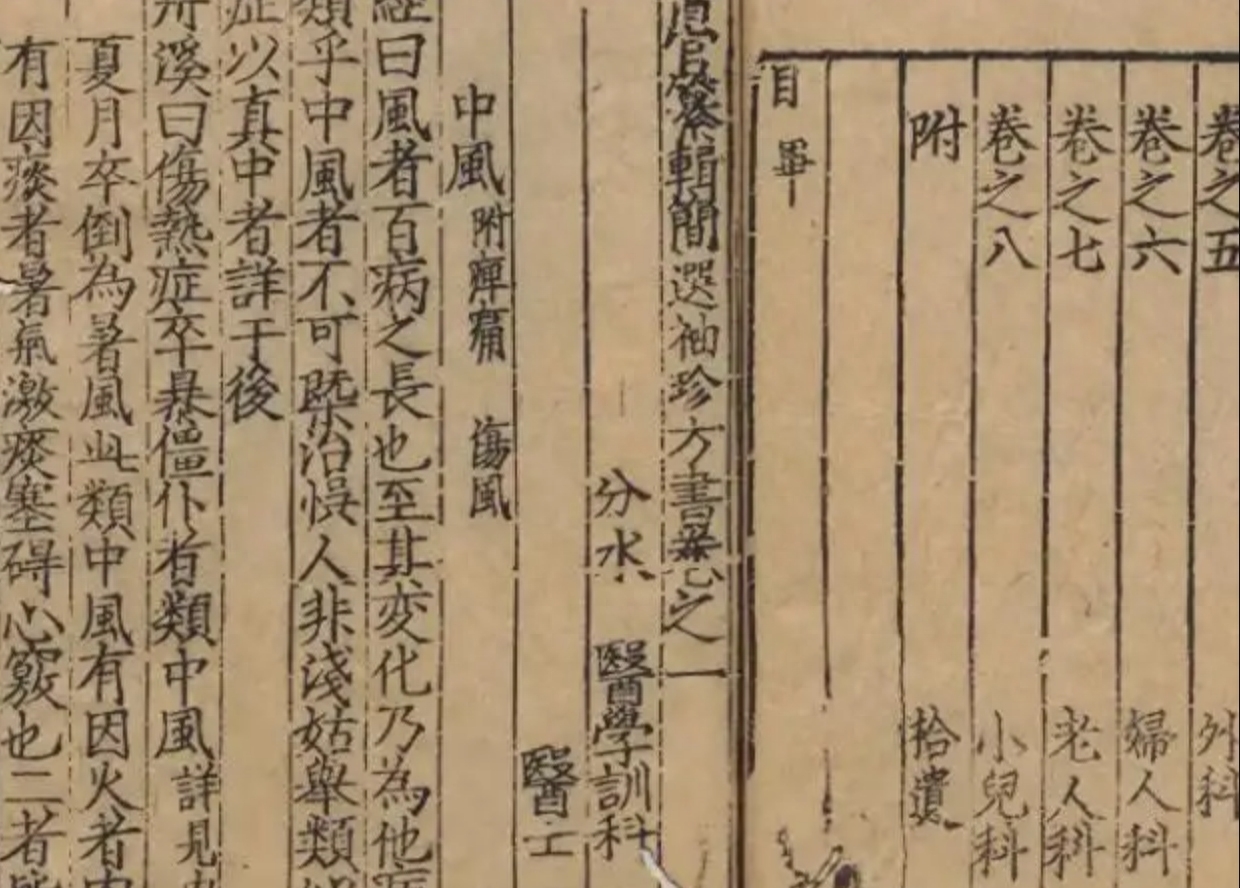 卷之五 外科
卷之六 婦人科
卷之七 老人科
卷之八 小兒科
附 拾遺
目畢
纂輯簡選袖珍方書卷之一
分水 醫學訓科
醫士
中風 附痺痛 傷風
經曰風者百病之長也至其変化乃為他病
類乎中風者不可槩治悞人非淺姑舉類
症以真中者詳于後
溪曰傷熱症卒暴僵仆者類中風詳見
夏月卒倒為暑風此類中風有因火者
有因痰者暑氣激痰塞碍心竅也二者